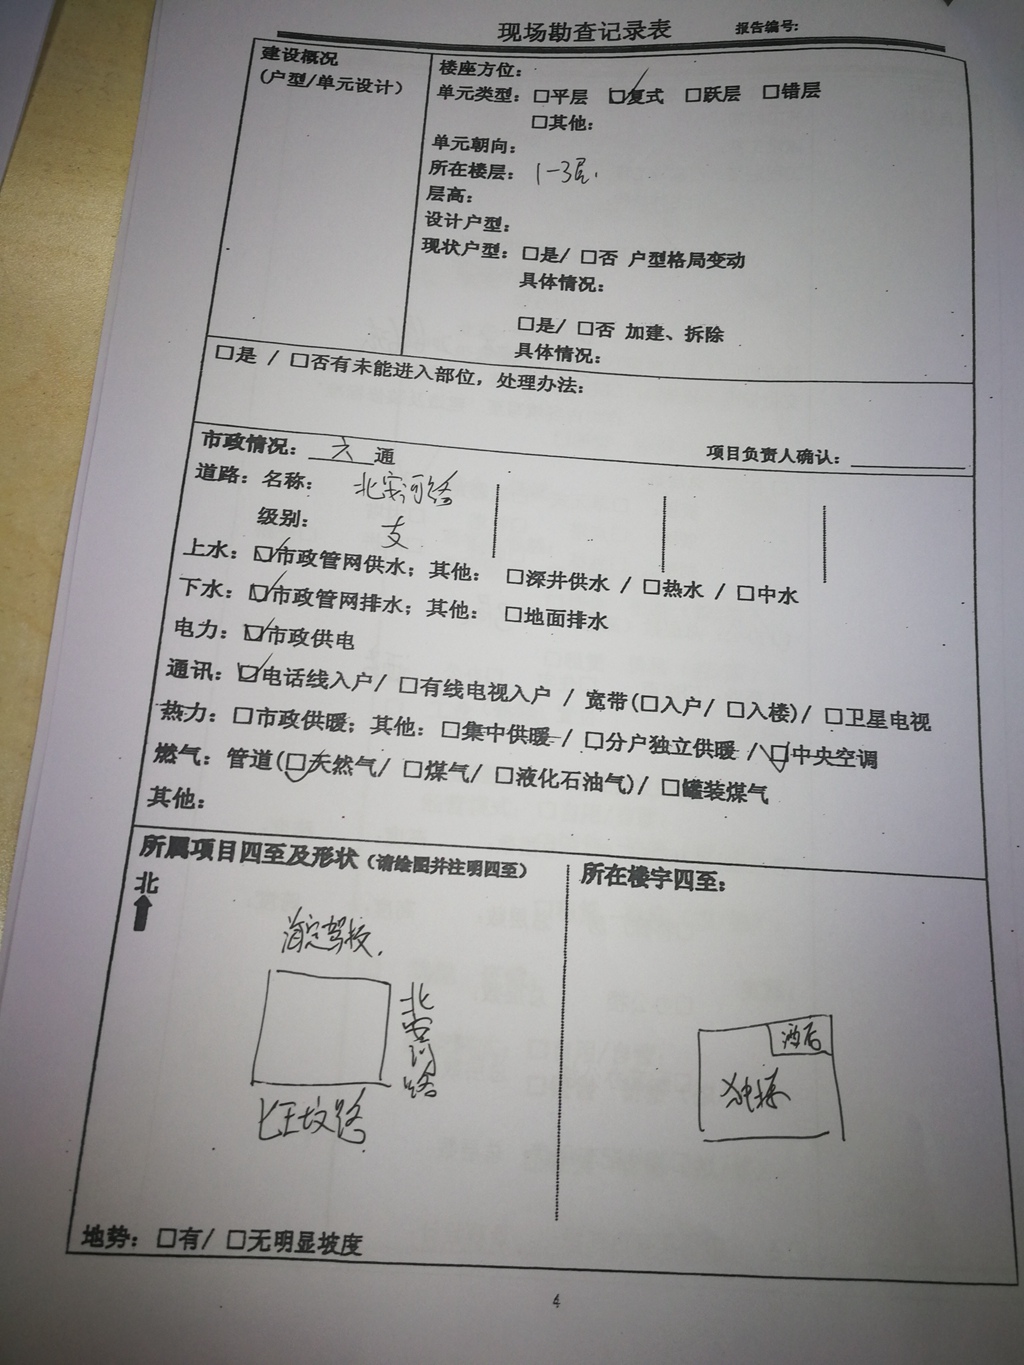 现场勘查记录表 报告编号:
建设概况
(户型/单元设计)
楼座方位:
单元类型: □平层 ☑复式 □跃层 □错层
□其他:
单元朝向:
所在楼层: 1-3层.
层高:
设计户型:
现状户型: □是/ □否 户型格局变动
具体情况:
□是/ □否 加建、拆除
具体情况:
□是 / □否有未能进入部位, 处理办法:
市政情况: 六 通 项目负责人确认:
道路: 名称: 北安河路
级别: 支
上水: ☑市政管网供水; 其他: □深井供水 / □热水 / □中水
下水: ☑市政管网排水; 其他: □地面排水
电力: ☑市政供电
通讯: ☑电话线入户/ □有线电视入户 / 宽带(□入户/ □入楼)/ □卫星电视
热力: □市政供暖; 其他: □集中供暖 / □分户独立供暖 / ☑中央空调
燃气: 管道(☑天然气/ □煤气/ □液化石油气)/ □罐装煤气
其他:
所属项目四至及形状 (请绘图并注明四至)
北
海淀驾校.
北安河路
七王坟路
所在楼宇四至:
酒店
独栋
地势: □有/ □无明显坡度
4